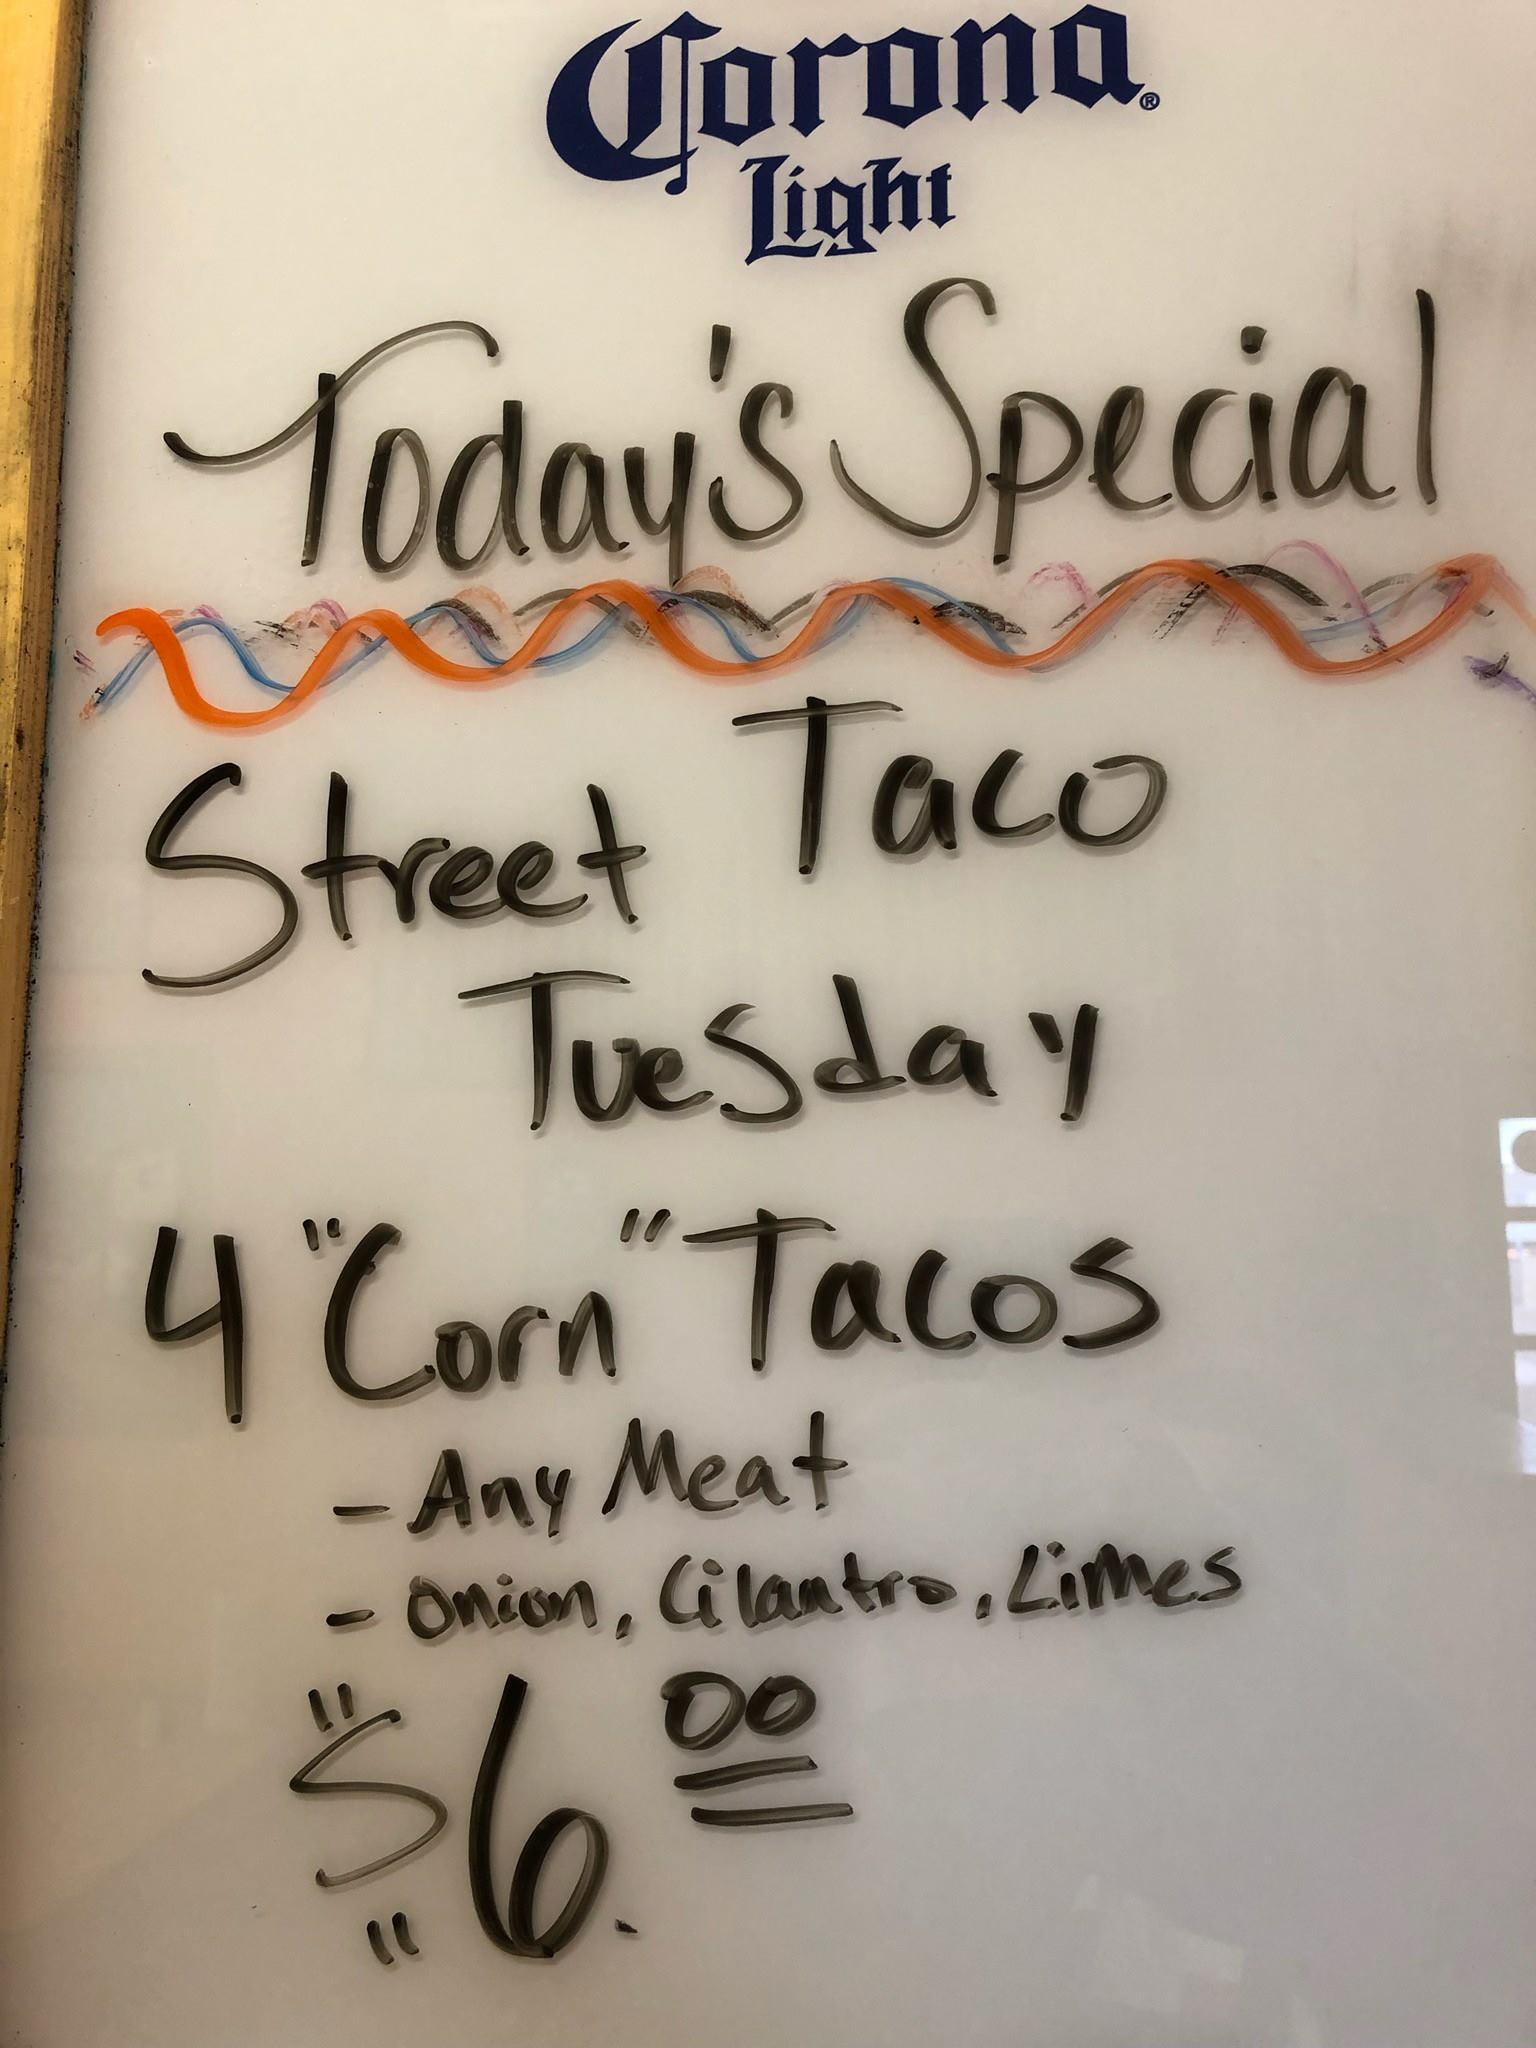 Corona®
Light
Today's Special
Street Taco
Tuesday
4 "Corn" Tacos
- Any Meat
- Onion, Cilantro, Limes
$6.00